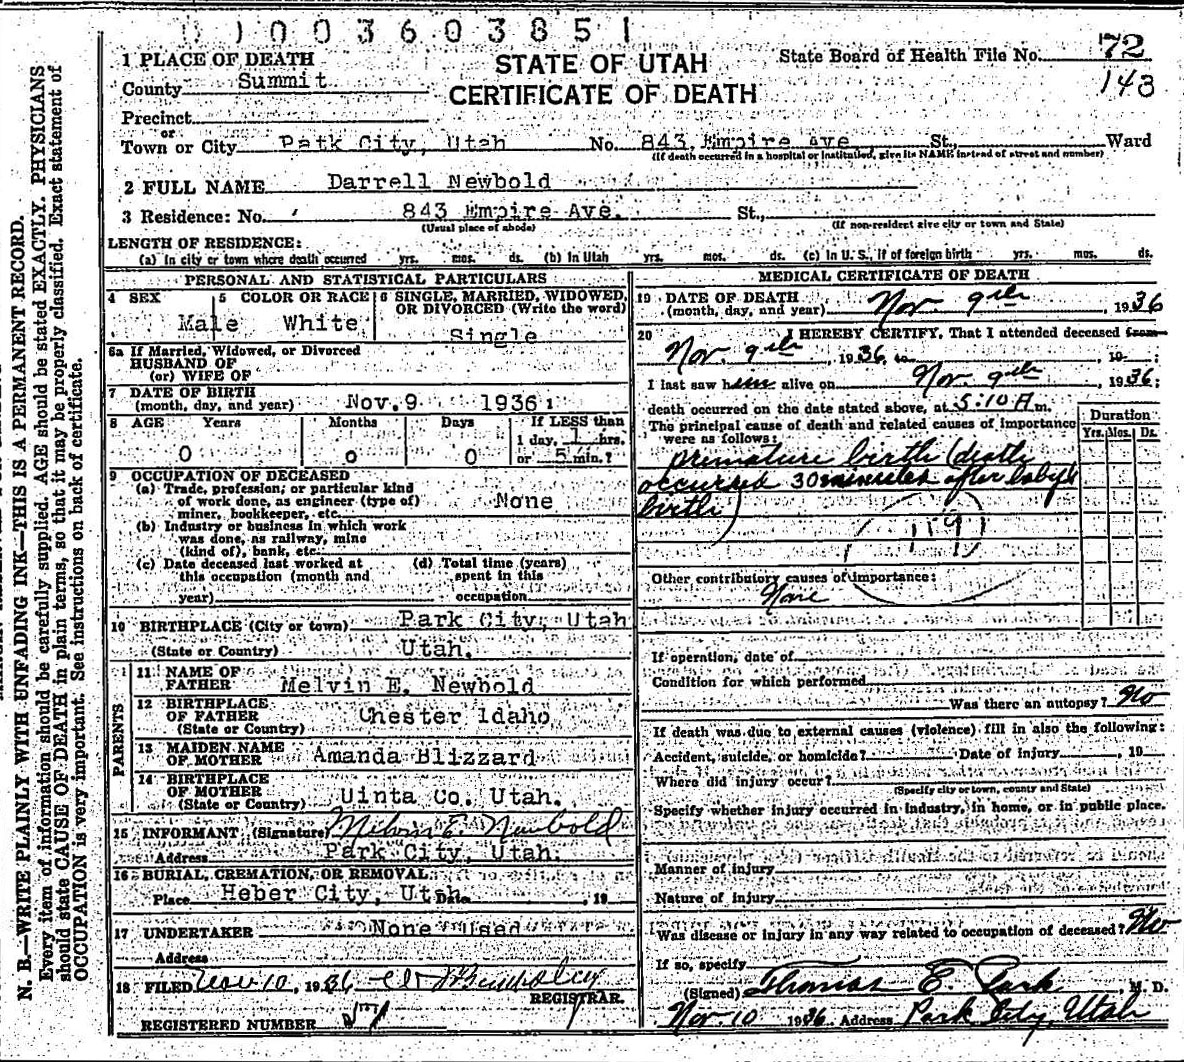 01003603851
STATE OF UTAH
CERTIFICATE OF DEATH
State Board of Health File No. 72
143
1 PLACE OF DEATH
County Summit
Precinct
or
Town or City Park City, Utah No. 843 Empire Ave St., Ward
(If death occurred in a hospital or institution, give its NAME instead of street and number)
2 FULL NAME Darrell Newbold
3 Residence: No. 843 Empire Ave. St.,
(Usual place of abode) (If non-resident give city or town and State)
LENGTH OF RESIDENCE:
(a) In city or town where death occurred yrs. mos. ds. (b) In Utah yrs. mos. ds. (c) In U. S., if of foreign birth yrs. mos. ds.
PERSONAL AND STATISTICAL PARTICULARS
4 SEX 5 COLOR OR RACE 6 SINGLE, MARRIED, WIDOWED, OR DIVORCED (Write the word)
Male White Single
6a If Married, Widowed, or Divorced
HUSBAND OF
(or) WIFE OF
7 DATE OF BIRTH
(month, day, and year) Nov. 9 1936
8 AGE Years Months Days If LESS than
1 day, 1 hrs.
0 0 0 or 5 min.?
9 OCCUPATION OF DECEASED
(a) Trade, profession, or particular kind
of work done, as engineer (type of)
miner, bookkeeper, etc. None
(b) Industry or business in which work
was done, as railway, mine
(kind of), bank, etc.
(c) Date deceased last worked at
this occupation (month and
year)
(d) Total time (years)
spent in this
occupation
10 BIRTHPLACE (City or town) Park City, Utah
(State or Country) Utah.
PARENTS
11 NAME OF
FATHER Melvin E. Newbold
12 BIRTHPLACE
OF FATHER Chester Idaho
(State or Country)
13 MAIDEN NAME
OF MOTHER Amanda Blizzard
14 BIRTHPLACE
OF MOTHER
(State or Country) Uinta Co. Utah.
15 INFORMANT (Signature) Melvin E Newbold
Address Park City, Utah.
16 BURIAL, CREMATION, OR REMOVAL
Place Heber City, Utah Date , 19
17 UNDERTAKER None Used
Address
18 FILED Nov 10, 1936
REGISTRAR.
REGISTERED NUMBER
MEDICAL CERTIFICATE OF DEATH
19 DATE OF DEATH
(month, day, and year) Nov. 9th, 1936
20 I HEREBY CERTIFY, That I attended deceased from
Nov. 9th, 1936, to , 19 ;
I last saw him alive on Nov. 9th, 1936;
death occurred on the date stated above, at 5:10 A m.
The principal cause of death and related causes of importance
were as follows:
Duration
Yrs. Mos. Ds.
premature birth (death
occurred 30 minutes after baby's
birth)
119
Other contributory causes of importance:
None
If operation, date of
Condition for which performed
Was there an autopsy? No
If death was due to external causes (violence) fill in also the following:
Accident, suicide, or homicide? Date of injury 19
Where did injury occur?
(Specify city or town, county and State)
Specify whether injury occurred in industry, in home, or in public place.
Manner of injury
Nature of injury
Was disease or injury in any way related to occupation of deceased? No
If so, specify
(Signed) Thomas E. Park, M. D.
Nov. 10 1936 Address Park City, Utah
N. B.—WRITE PLAINLY WITH UNFADING INK—THIS IS A PERMANENT RECORD.
Every item of information should be carefully supplied. AGE should be stated EXACTLY. PHYSICIANS
should state CAUSE OF DEATH in plain terms, so that it may be properly classified. Exact statement of
OCCUPATION is very important. See instructions on back of certificate.